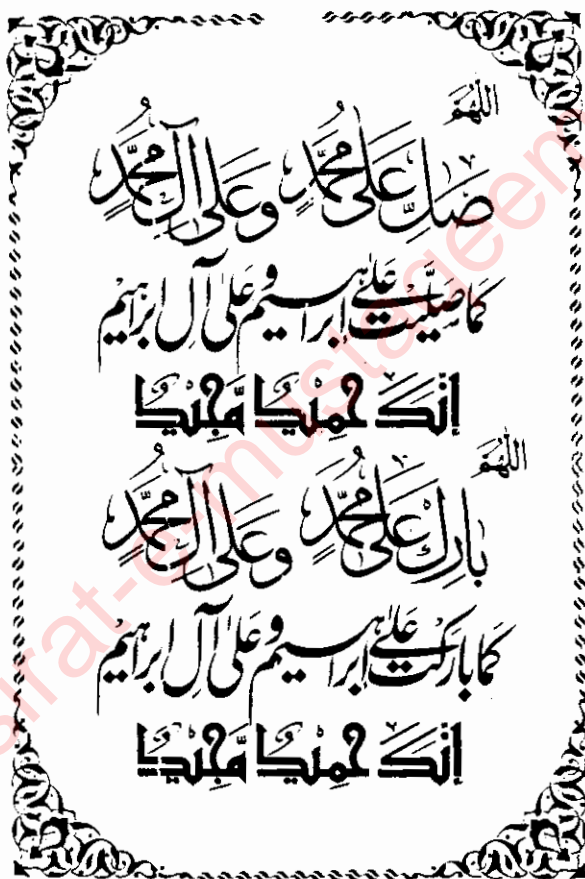 اللَّهُمَّ
صَلِّ عَلَى مُحَمَّدٍ وَعَلَى آلِ مُحَمَّدٍ
كَمَا صَلَّيْتَ عَلَى إِبْرَاهِيْمَ وَعَلَى آلِ إِبْرَاهِيْمَ
إِنَّكَ حَمِيْدٌ مَّجِيْدٌ
اللَّهُمَّ
بَارِكْ عَلَى مُحَمَّدٍ وَعَلَى آلِ مُحَمَّدٍ
كَمَا بَارَكْتَ عَلَى إِبْرَاهِيْمَ وَعَلَى آلِ إِبْرَاهِيْمَ
إِنَّكَ حَمِيْدٌ مَّجِيْدٌ
sirat-e-mustaqeem